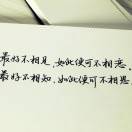 最好不相见，如此便可不相恋。
最好不相知，如此便可不相思。